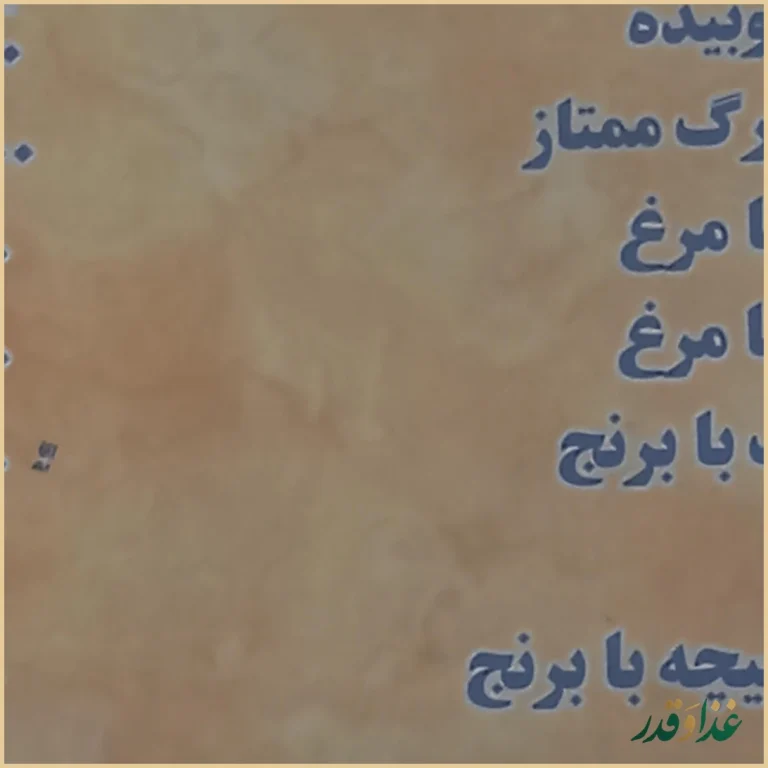 وبیده
رگ ممتاز
ا مرغ
ا مرغ
با برنج
یچه با برنج
غذا و قدر